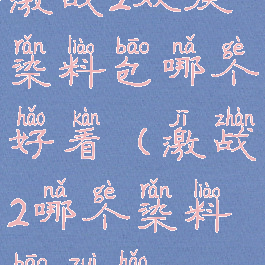 激战2双灰
rǎn liào bāo nǎ gè
染料包哪个
hǎo kàn jī zhàn
好看（激战
nǎ gè rǎn liào
2哪个染料
bāo zuì hǎo